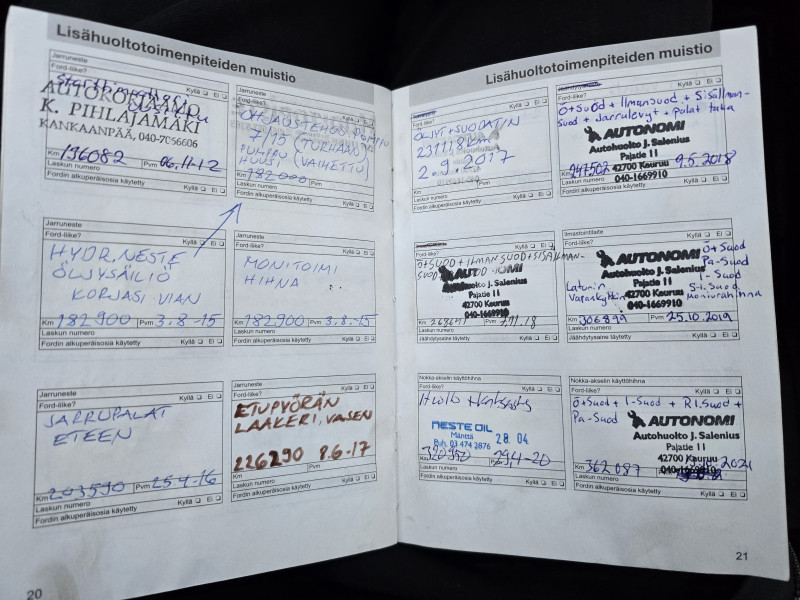 Lisähuoltotoimenpiteiden muistio
Jarruneste
Ford-liike? Kyllä ❏ Ei ❏
AUTOKORJAAMO
K. PIHLAJAMÄKI
KANKAANPÄÄ, 040-7056606
Km 196082 Pvm 06.11-12
Laskun numero
Fordin alkuperäisosia käytetty Kyllä ❏ Ei ❏
Jarruneste
Ford-liike? Kyllä ❏ Ei ❏
OHJAUSTEHOS. PUMPUN
7/15 (TURHAAN)
(VAIHETTU)
Km 182000 Pvm
Laskun numero
Fordin alkuperäisosia käytetty Kyllä ❏ Ei ❏
Jarruneste
Ford-liike? Kyllä ❏ Ei ❏
HYDR.NESTE
ÖLJYSÄILIÖ
KORJASI VIAN
Km 182900 Pvm 3.8-15
Laskun numero
Fordin alkuperäisosia käytetty Kyllä ❏ Ei ❏
Jarruneste
Ford-liike? Kyllä ❏ Ei ❏
MONITOIMI
HIHNA
Km 182900 Pvm 3.8-15
Laskun numero
Fordin alkuperäisosia käytetty Kyllä ❏ Ei ❏
Jarruneste
Ford-liike? Kyllä ❏ Ei ❏
JARRUPALAT
ETEEN
Km 203590 Pvm 25.4-16
Laskun numero
Fordin alkuperäisosia käytetty Kyllä ❏ Ei ❏
Jarruneste
Ford-liike? Kyllä ❏ Ei ❏
ETUPYÖRÄN
LAAKERI, VASEN
226290 8.6-17
Km Pvm
Laskun numero
Fordin alkuperäisosia käytetty Kyllä ❏ Ei ❏
20
Lisähuoltotoimenpiteiden muistio
Ford-liike? Kyllä ❏ Ei ❏
ÖLJYT+SUODATIN
231118km
2.9.2017
Km Pvm
Laskun numero
Fordin alkuperäisosia käytetty Kyllä ❏ Ei ❏
Ford-liike? Kyllä ❏ Ei ❏
Ö+Suod + Ilmansuod + Sisäilman-
Suod + Jarrulevyt + Palat taka
AUTONOMI
Autohuolto J. Salenius
Pajatie 11
42700 Keuruu
040-1669910
Km 247502 9.5.2018
Laskun numero
Fordin alkuperäisosia käytetty Kyllä ❏ Ei ❏
Ford-liike? Kyllä ❏ Ei ❏
Ö+SUOD + ILMANSUOD + SISÄILMAN-
SUOD
AUTONOMI
Autohuolto J. Salenius
Pajatie 11
42700 Keuruu
040-1669910
Km Pvm
Laskun numero
Jäähdytysaine täytetty Kyllä ❏ Ei ❏
Ilmastointilaite
Ford-liike? Kyllä ❏ Ei ❏
Ö+Suod
Pa-Suod
I-Suod
Si.Suod
Moniurahihna
Laturin
AUTONOMI
Autohuolto J. Salenius
Pajatie 11
42700 Keuruu
040-1669910
Km 306899 Pvm 25.10.2019
Laskun numero
Jäähdytysaine täytetty Kyllä ❏ Ei ❏
Nokka-akselin käyttöhihna
Ford-liike? Kyllä ❏ Ei ❏
Huolto + Katsastus
NESTE OIL
Mänttä
Puh. 03 474 2876
28.04
Km Pvm 29.4-20
Laskun numero
Fordin alkuperäisosia käytetty Kyllä ❏ Ei ❏
Nokka-akselin käyttöhihna
Ford-liike? Kyllä ❏ Ei ❏
Ö+Suod + I-Suod + RI.Suod +
Pa-Suod
AUTONOMI
Autohuolto J. Salenius
Pajatie 11
42700 Keuruu
040-1669910
Km 362087 2021
Laskun numero
Fordin alkuperäisosia käytetty Kyllä ❏ Ei ❏
21